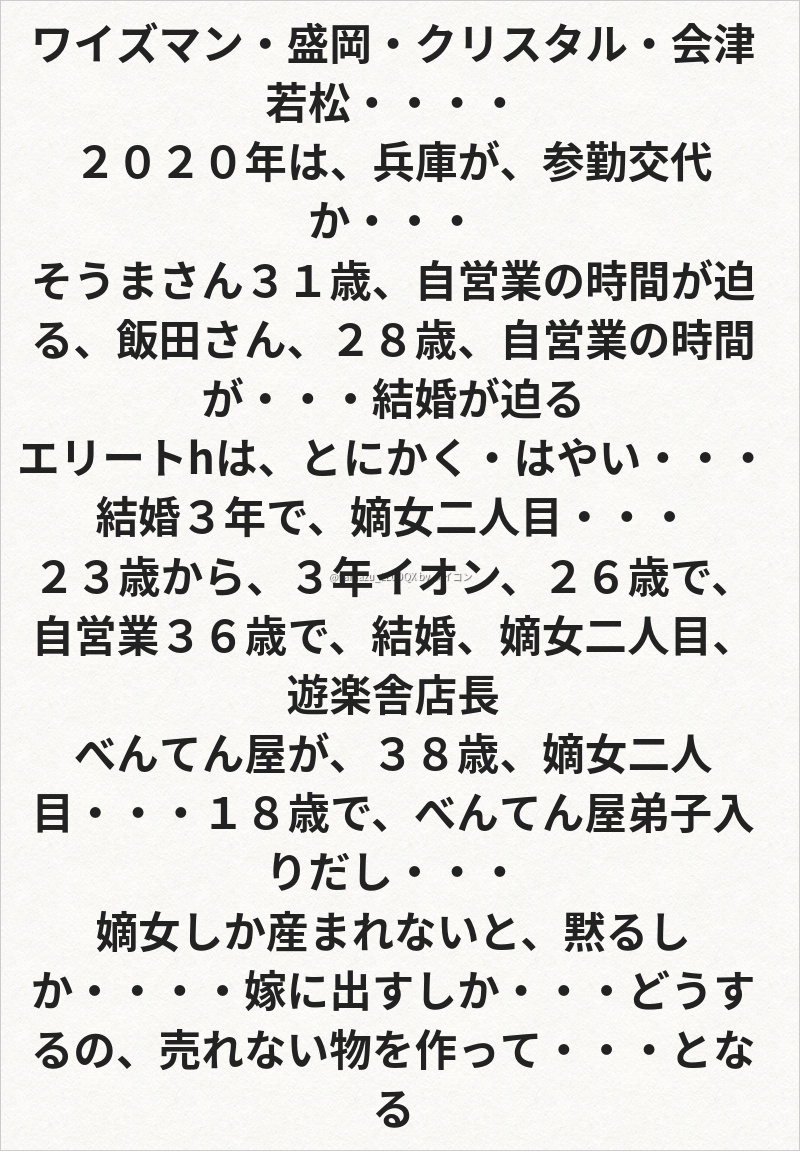 ワイズマン・盛岡・クリスタル・会津
若松・・・・
２０２０年は、兵庫が、参勤交代
か・・・
そうまさん３１歳、自営業の時間が迫
る、飯田さん、２８歳、自営業の時間
が・・・結婚が迫る
エリートhは、とにかく・はやい・・・
結婚３年で、嫡女二人目・・・
２３歳から、３年イオン、２６歳で、
自営業３６歳で、結婚、嫡女二人目、
遊楽舎店長
べんてん屋が、３８歳、嫡女二人
目・・・１８歳で、べんてん屋弟子入
りだし・・・
嫡女しか産まれないと、黙るし
か・・・・嫁に出すしか・・・どうす
るの、売れない物を作って・・・とな
る